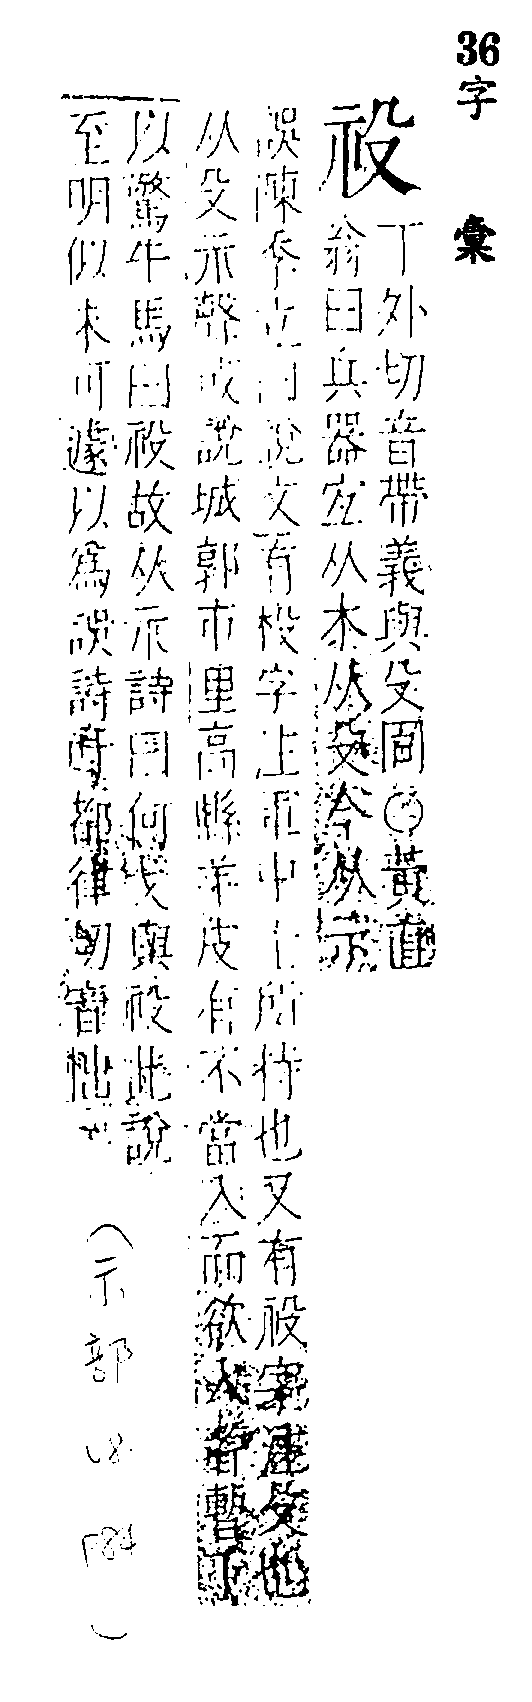 36字 彙
祋
丁外切音帶義與殳同○黃直
翁曰兵器宜从木从殳今从示
誤陳季立曰說文有杸字上軍中士所持也又有祋字殳也
从殳示聲或說城郭市里高縣羊皮有不當入而欲入者暫下
以驚牛馬曰祋故从示詩曰何戈與祋此說
至明似未可遽以爲誤詩都律切音
(示部 18 P84)